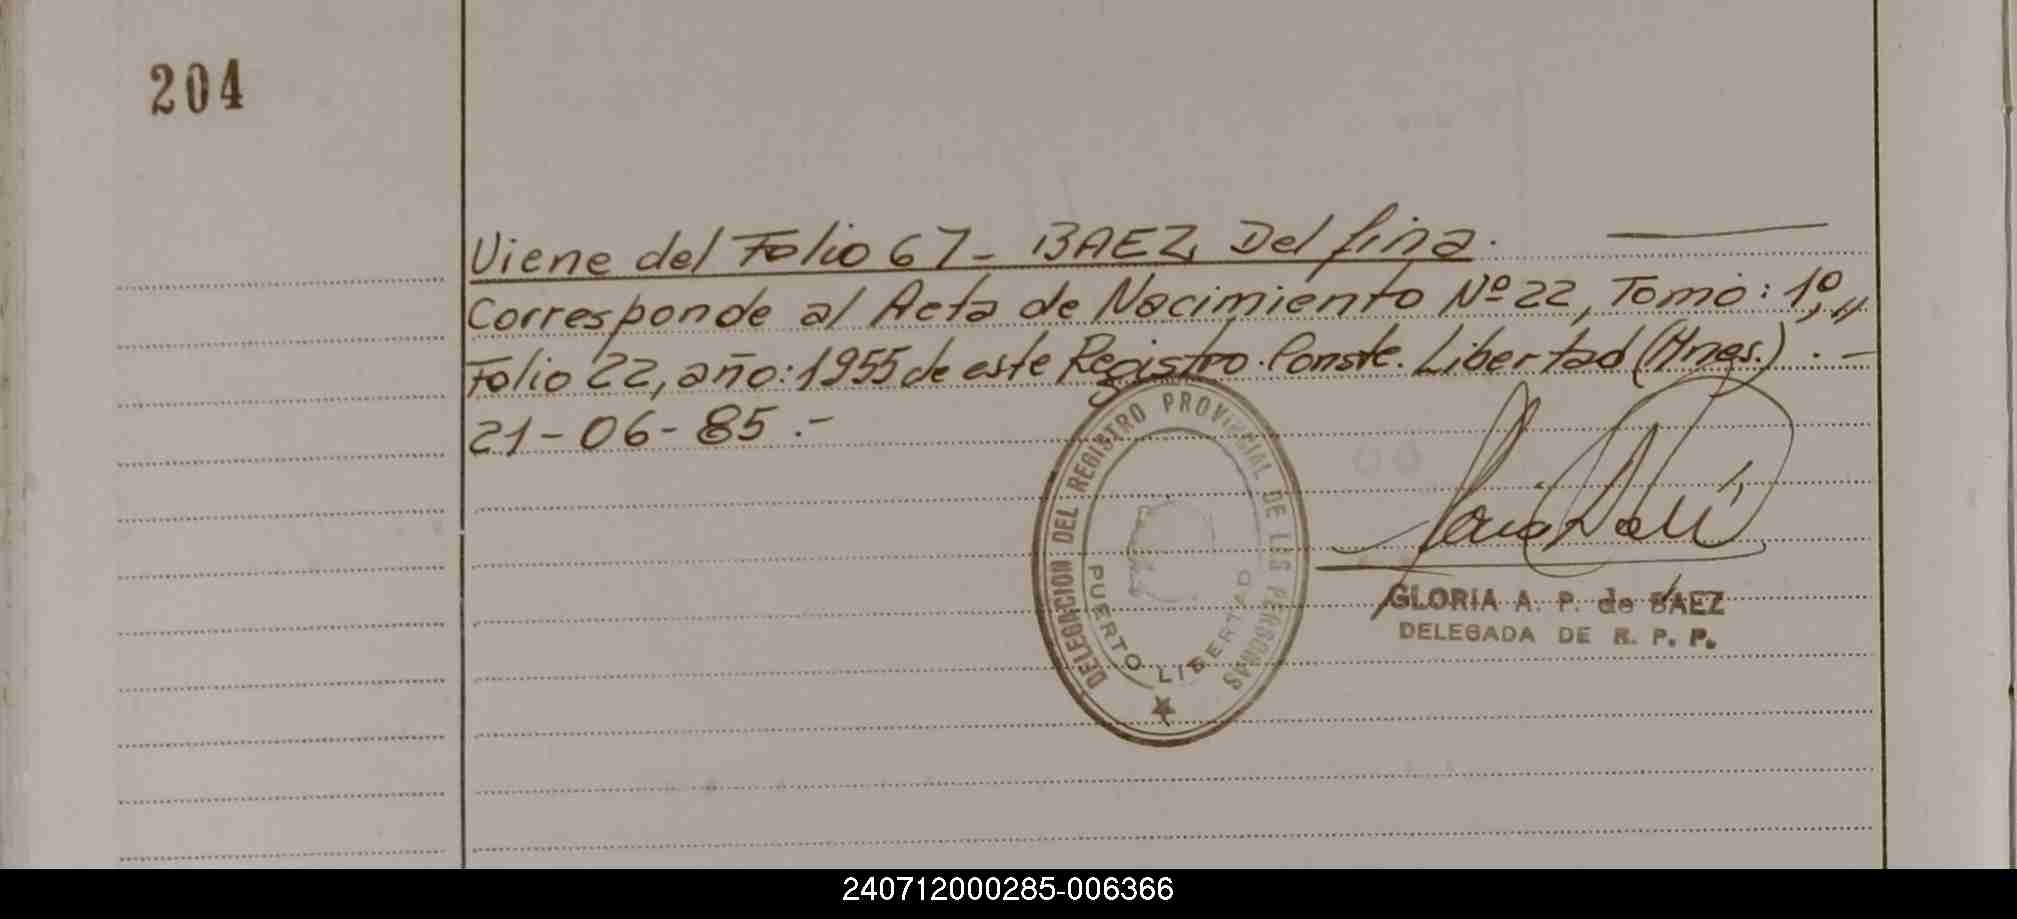 204
Viene del Folio 67 - BAEZ, Delfina.
Corresponde al Acta de Nacimiento Nº 22, Tomo: 1º,
Folio 22, año: 1955 de este Registro. Conste. Libertad (Mnes.). -
21-06-85.-
DELEGACION DEL REGISTRO PROVINCIAL DE LAS PERSONAS
PUERTO LIBERTAD
GLORIA A. P. de BAEZ
DELEGADA DE R. P. P.
240712000285-006366